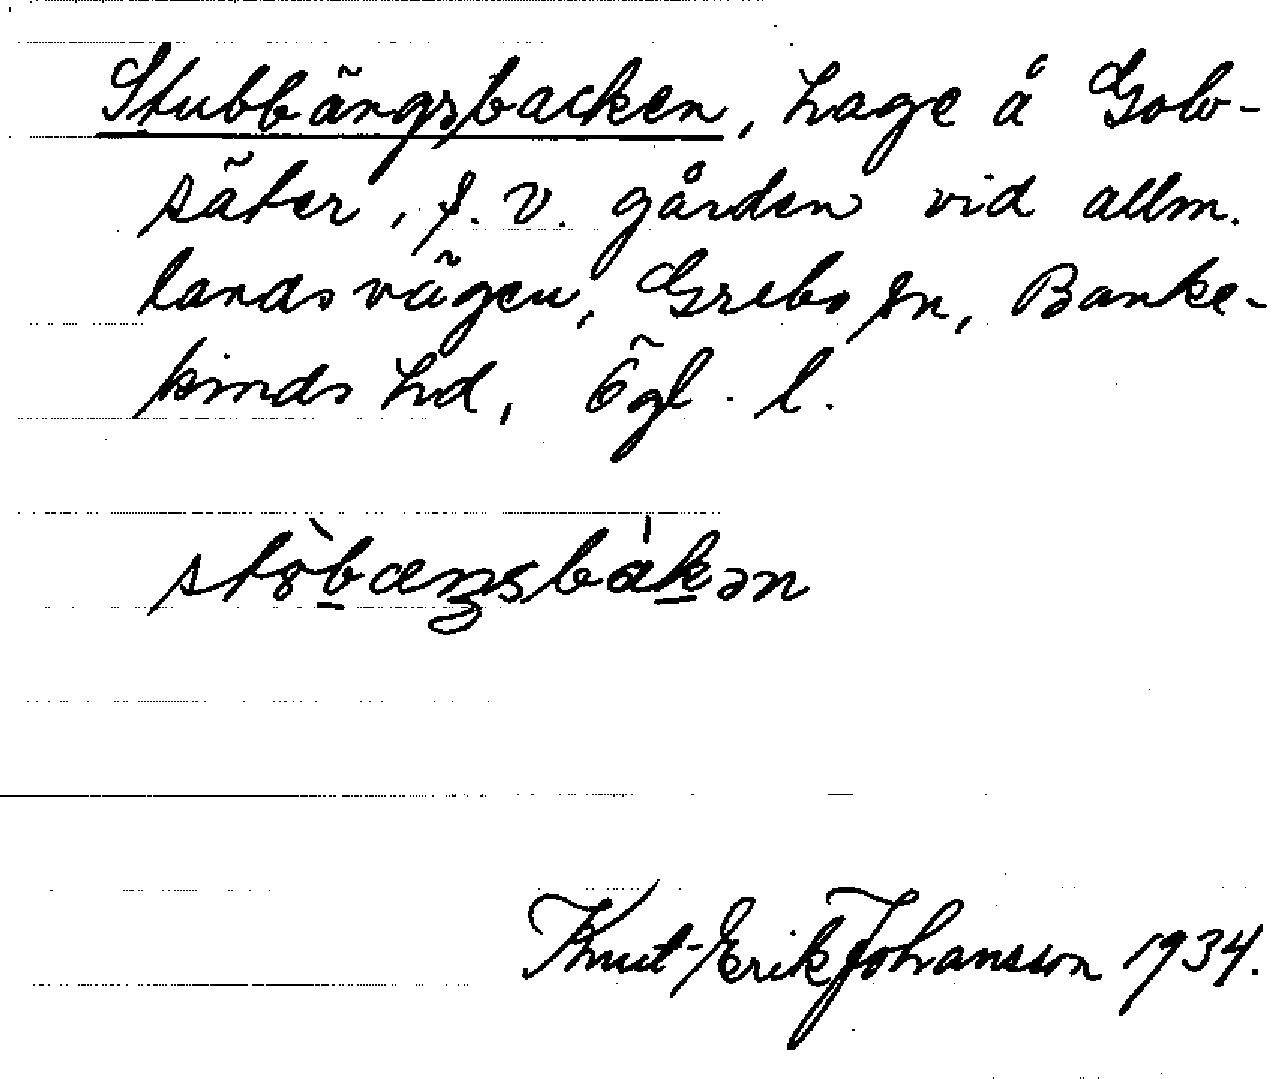 Stubbängsbacken, hage å Golv-
säter, f. v. gården vid allm.
landsvägen, Grebo sn, Banke-
kinds hd, Ögl. l.
Knut-Erik Johansson 1934.